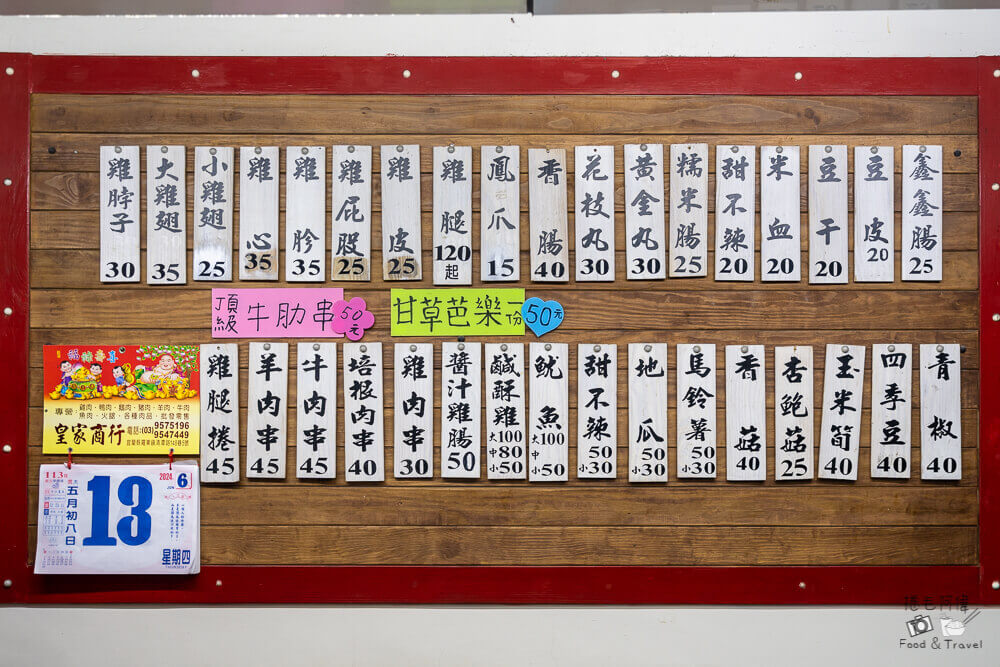 雞脖子 30
大雞翅 35
小雞翅 25
雞心 35
雞胗 35
雞屁股 25
雞皮 25
雞腿 120起
鳳爪 15
香腸 40
花枝丸 30
黃金丸 30
糯米腸 25
甜不辣 20
米血 20
豆干 20
豆皮 20
鑫鑫腸 25
頂級牛肋串 50元
甘草芭樂 一份 50元
雞腿捲 45
羊肉串 45
牛肉串 45
培根肉串 40
雞肉串 30
醬汁雞腸 50
鹹酥雞 大100 中80 小50
魷魚 大100 小50
甜不辣 50 小30
地瓜 50 小30
馬鈴薯 50 小30
香菇 40
杏鮑菇 25
玉米筍 40
四季豆 40
青椒 40
專營
雞肉、鴨肉、鵝肉、豬肉、羊肉、牛肉
魚肉、火鍋、各種肉品、批發零售
皇家商行
電話:(03)
9575196
9547449
113年
五月初八日
13
2024
6
JUN
星期四
THURSDAY
捲毛阿偉
Food & Travel